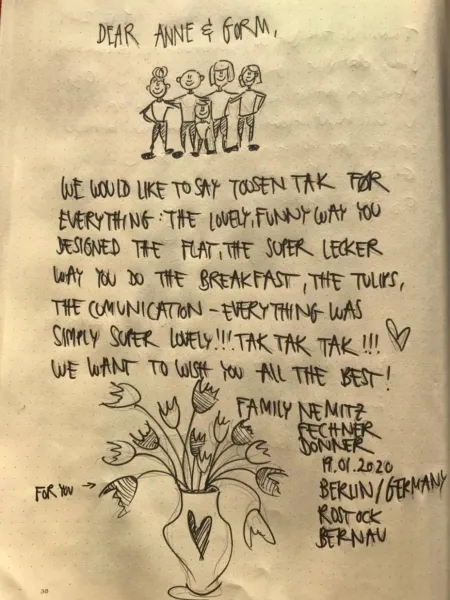 DEAR ANNE & GORM,
WE WOULD LIKE TO SAY TOOSEN TAK FØR
EVERYTHING: THE LOVELY, FUNNY WAY YOU
DESIGNED THE FLAT, THE SUPER LECKER
WAY YOU DO THE BREAKFAST, THE TULIPS,
THE COMUNICATION - EVERYTHING WAS
SIMPLY SUPER LOVELY!!! TAK TAK TAK !!!
WE WANT TO WISH YOU ALL THE BEST!
FAMILY NEMITZ
FECHNER
DONNER
19.01.2020
FOR YOU →
BERLIN/GERMANY
ROSTOCK
BERNAU
30